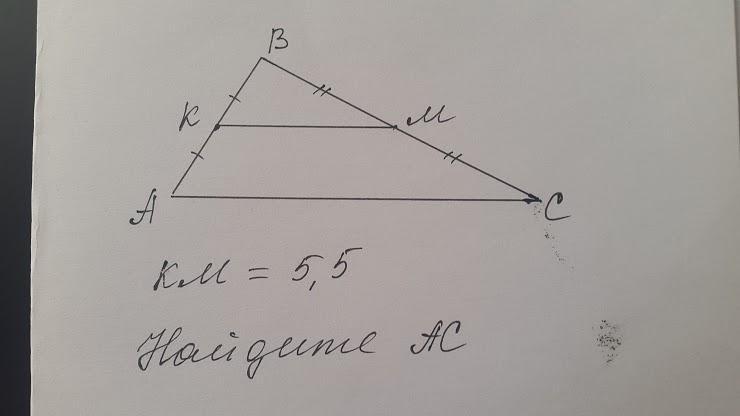 B
K M
A C
KM = 5,5
Найдите AC